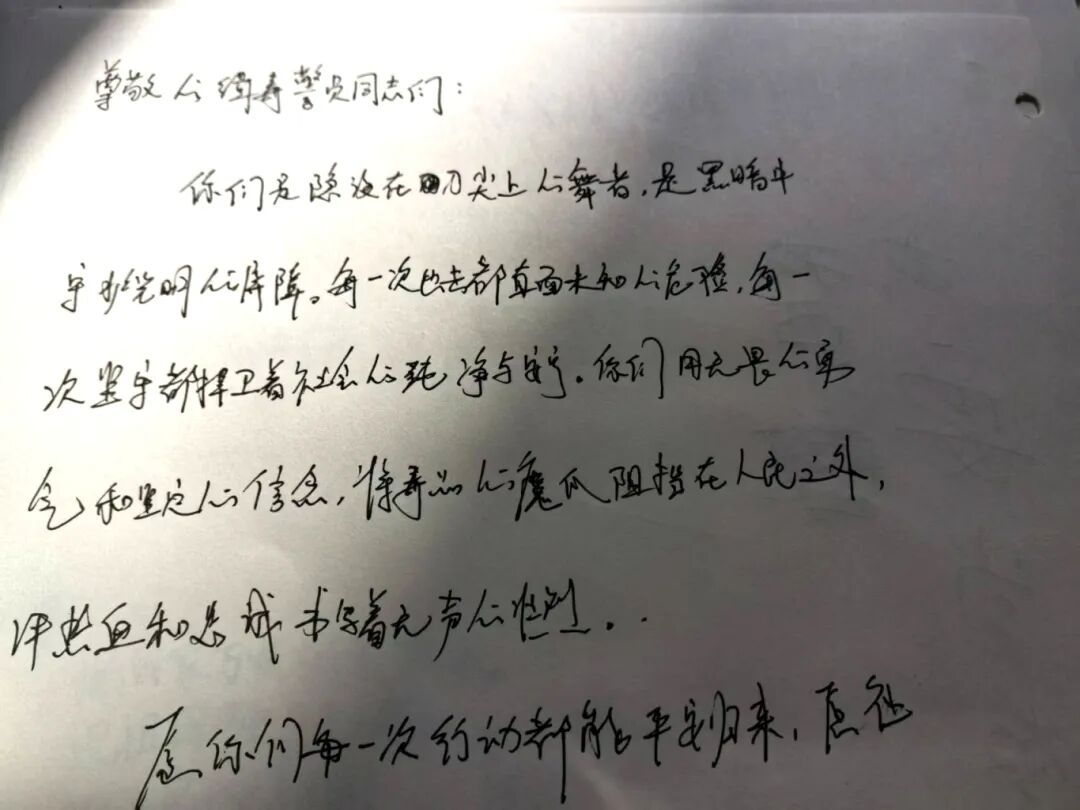 尊敬的缉毒警员同志们：
你们是隐没在刀尖上的舞者，是黑暗中
守护光明的屏障。每一次出击都直面未知的危险，每一
次坚守都捍卫着社会的纯净与安宁。你们用无畏的勇
气和坚定的信念，将毒品的魔爪阻挡在人民之外，
用热血和忠诚书写着无声的壮烈。
愿你们每一次行动都能平安归来，愿